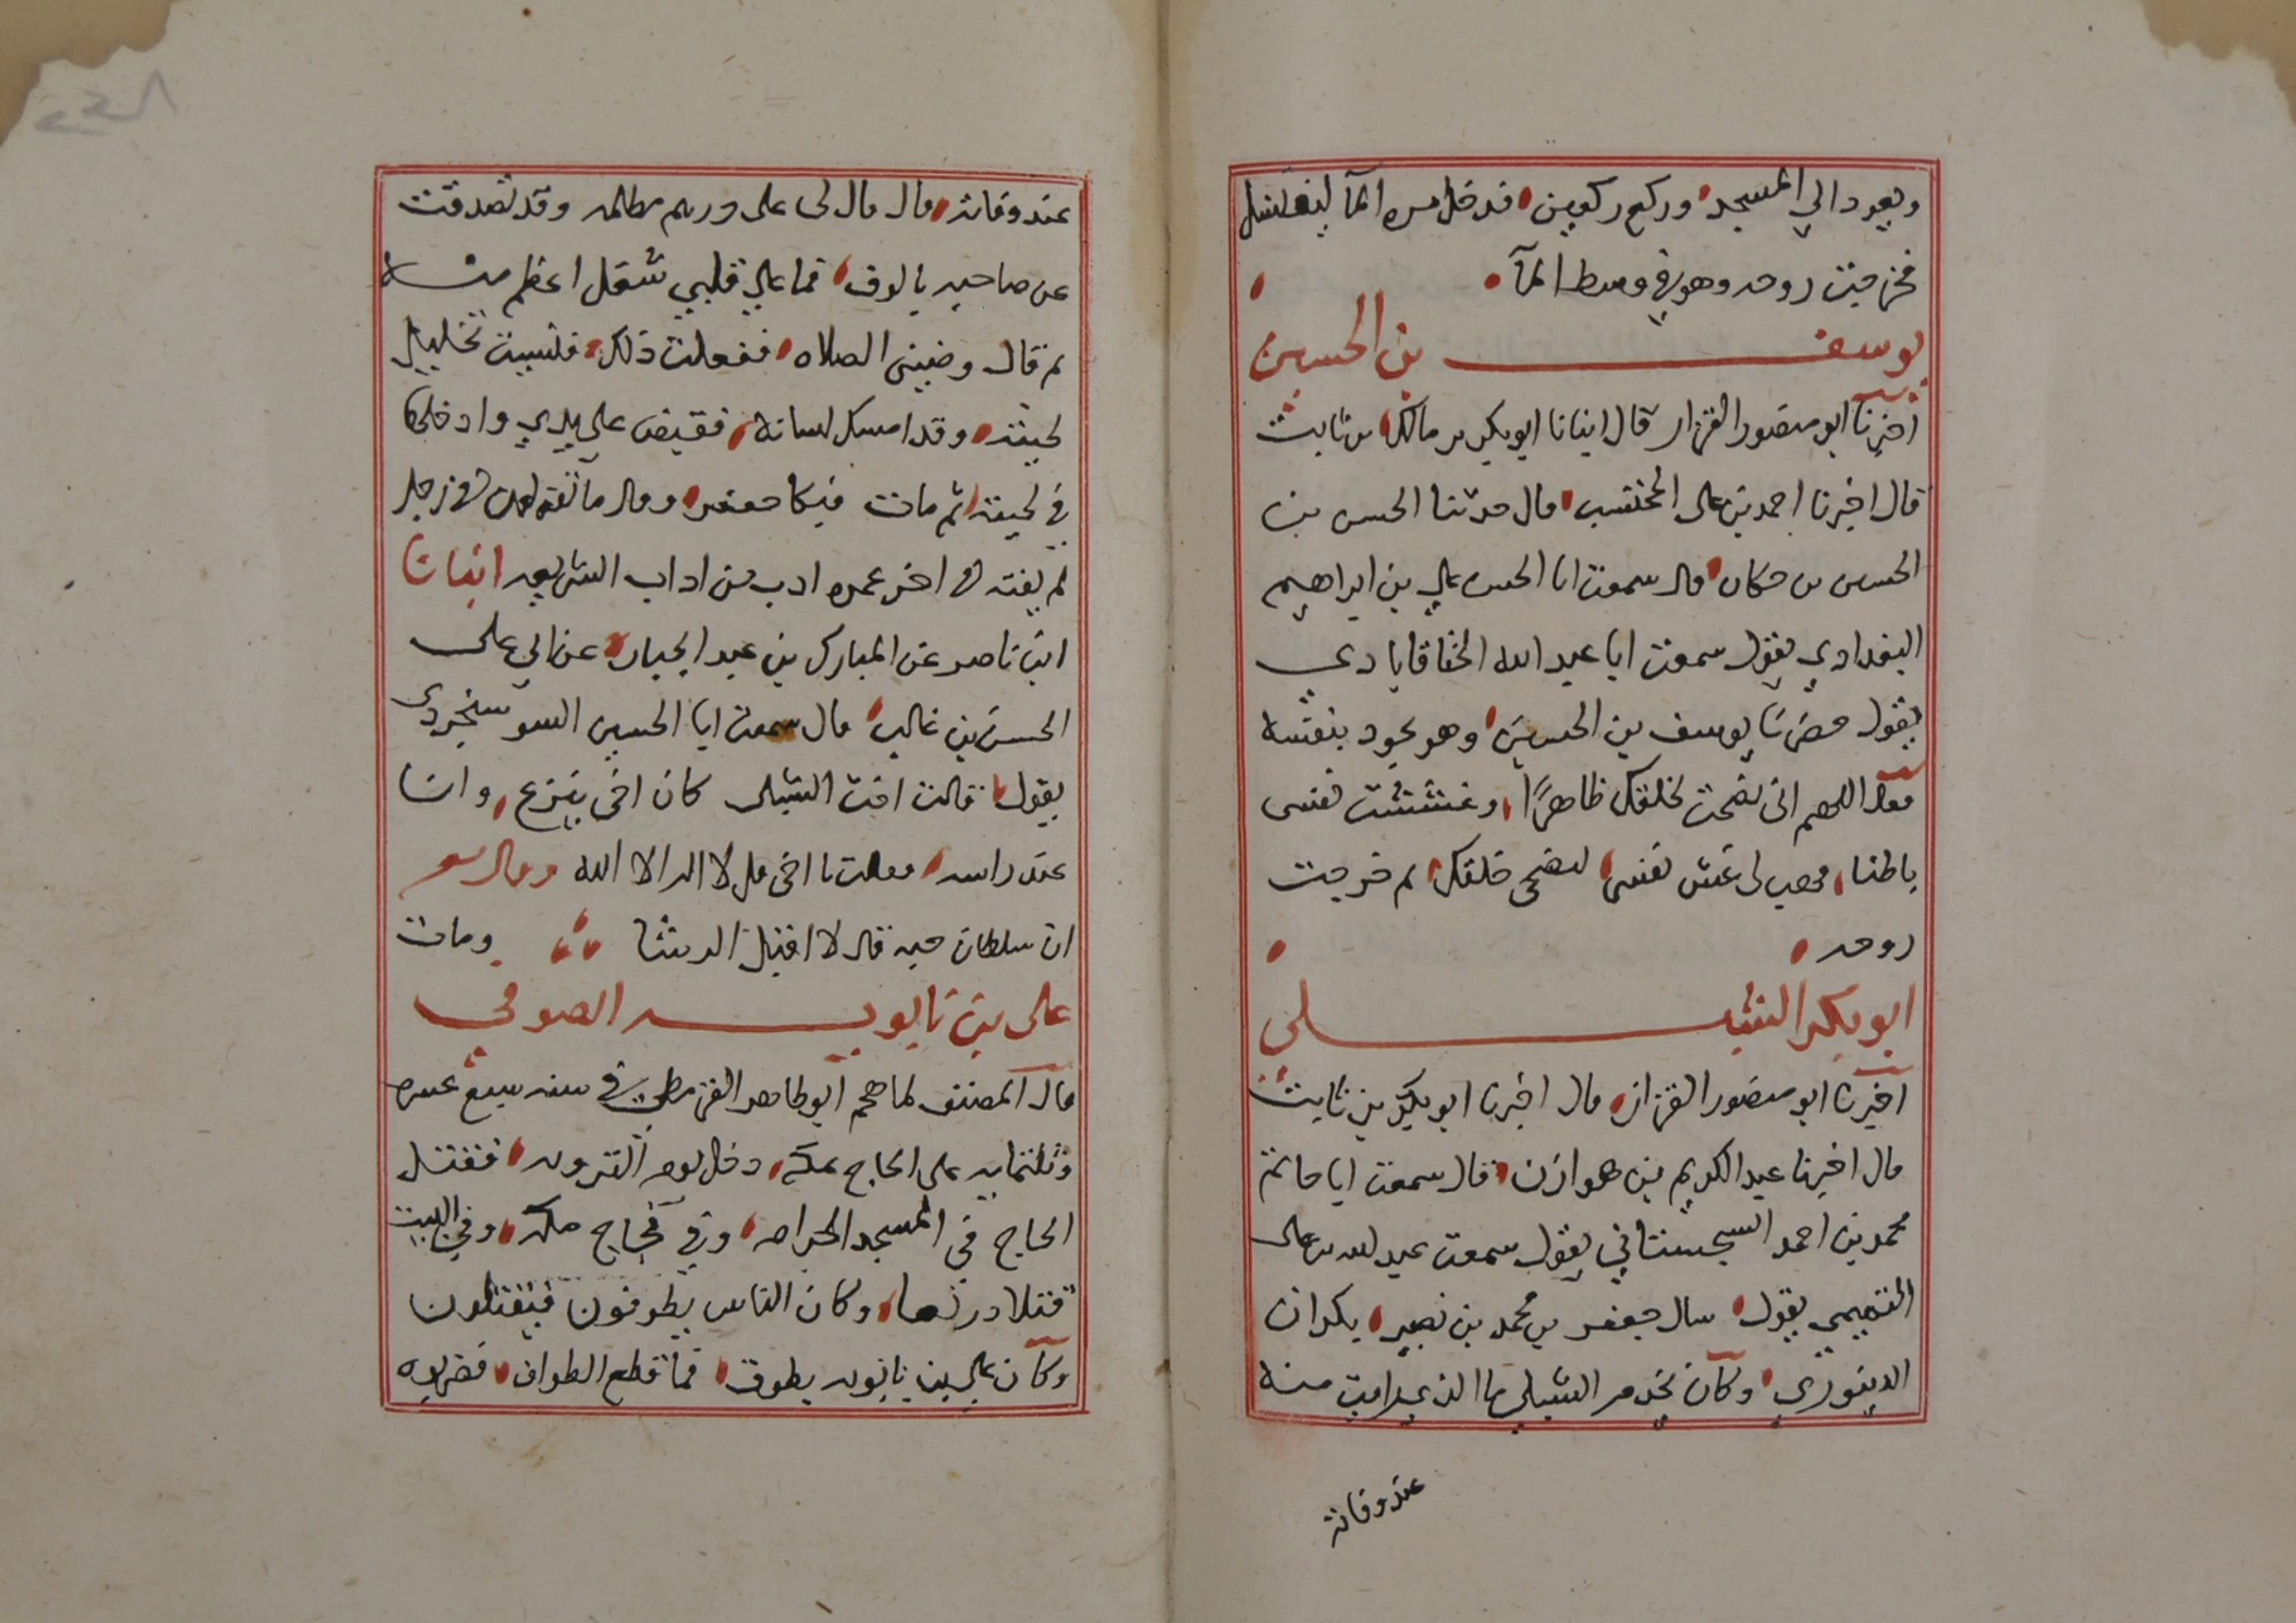 ويعود الي المسجد وركع ركعتين فدخل مره المآ ليغتسل
فخرجت روحه وهو في وسط المآ
يوسف بن الحسين
اخبرنا ابو منصور القزاز قال انبانا ابو بكر بن مالك بن ثابت
قال اخبرنا احمد بن على المحتسب قال حدثنا الحسن بن
الحسين بن حمكان قال سمعت ابا الحسن علي بن ابراهيم
البغدادي يقول سمعت ابا عبد الله الخناقابادي
يقول حضرنا يوسف بن الحسين وهو يجود بنفسه
فقال اللهم انى نصحت لخلقك ظاهرًا وغششت نفسى
باطنا فهب لى غش نفسى لنصحى خلقك ثم خرجت
روحه
ابو بكر الشبلي
اخبرنا ابو منصور القزاز قال اخبرنا ابو بكر بن ثابت
قال اخبرنا عبد الكريم بن هوازن قال سمعت ابا حاتم
محمد بن احمد السجستاني يقول سمعت عبد الله بن على
التميمي يقول سال جعفر بن محمد بن نصير بكران
الدينوري وكان يخدم الشبلي ما الذي رايت منه
عند وفاته
عند وفاته قال قال لى على درهم مظلمه وقد تصدقت
عن صاحبه بالوف فما علي قلبي شغل اعظم منه
ثم قال وضينى الصلاه ففعلت ذلك فنسيت تخليل
لحيته وقد امسك لسانه فقبض علي يدي وادخلها
في لحيته ثم مات فبكا جعفر وقال ما تقولون في رجل
لم يفته في اخر عمره ادب من اداب الشريعه انبانا
ابن ناصر عن المبارك بن عبد الجبار عن ابي على
الحسن بن غالب قال سمعت ابا الحسين السوسنجردى
يقول قالت اخت الشبلى كان اخى ينزع وانا
عند راسه فقلت يا اخى قل لا اله الا الله وقال شعر
ان سلطان حبه قال لا اقبل الرشا ومات
على بن بابويه الصوفي
قال المصنف لما هجم ابو طاهر القرمطي في سنه سبع عشره
وثلثمايه على الحاج بمكه دخل يوم الترويه فقتل
الحاج في المسجد الحرام وفي فجاج مكه وفي البيت
قتلا ذريعا وكان الناس يطوفون فيقتلون
وكان علي بن بابويه يطوف فما قطع الطواف فضربوه